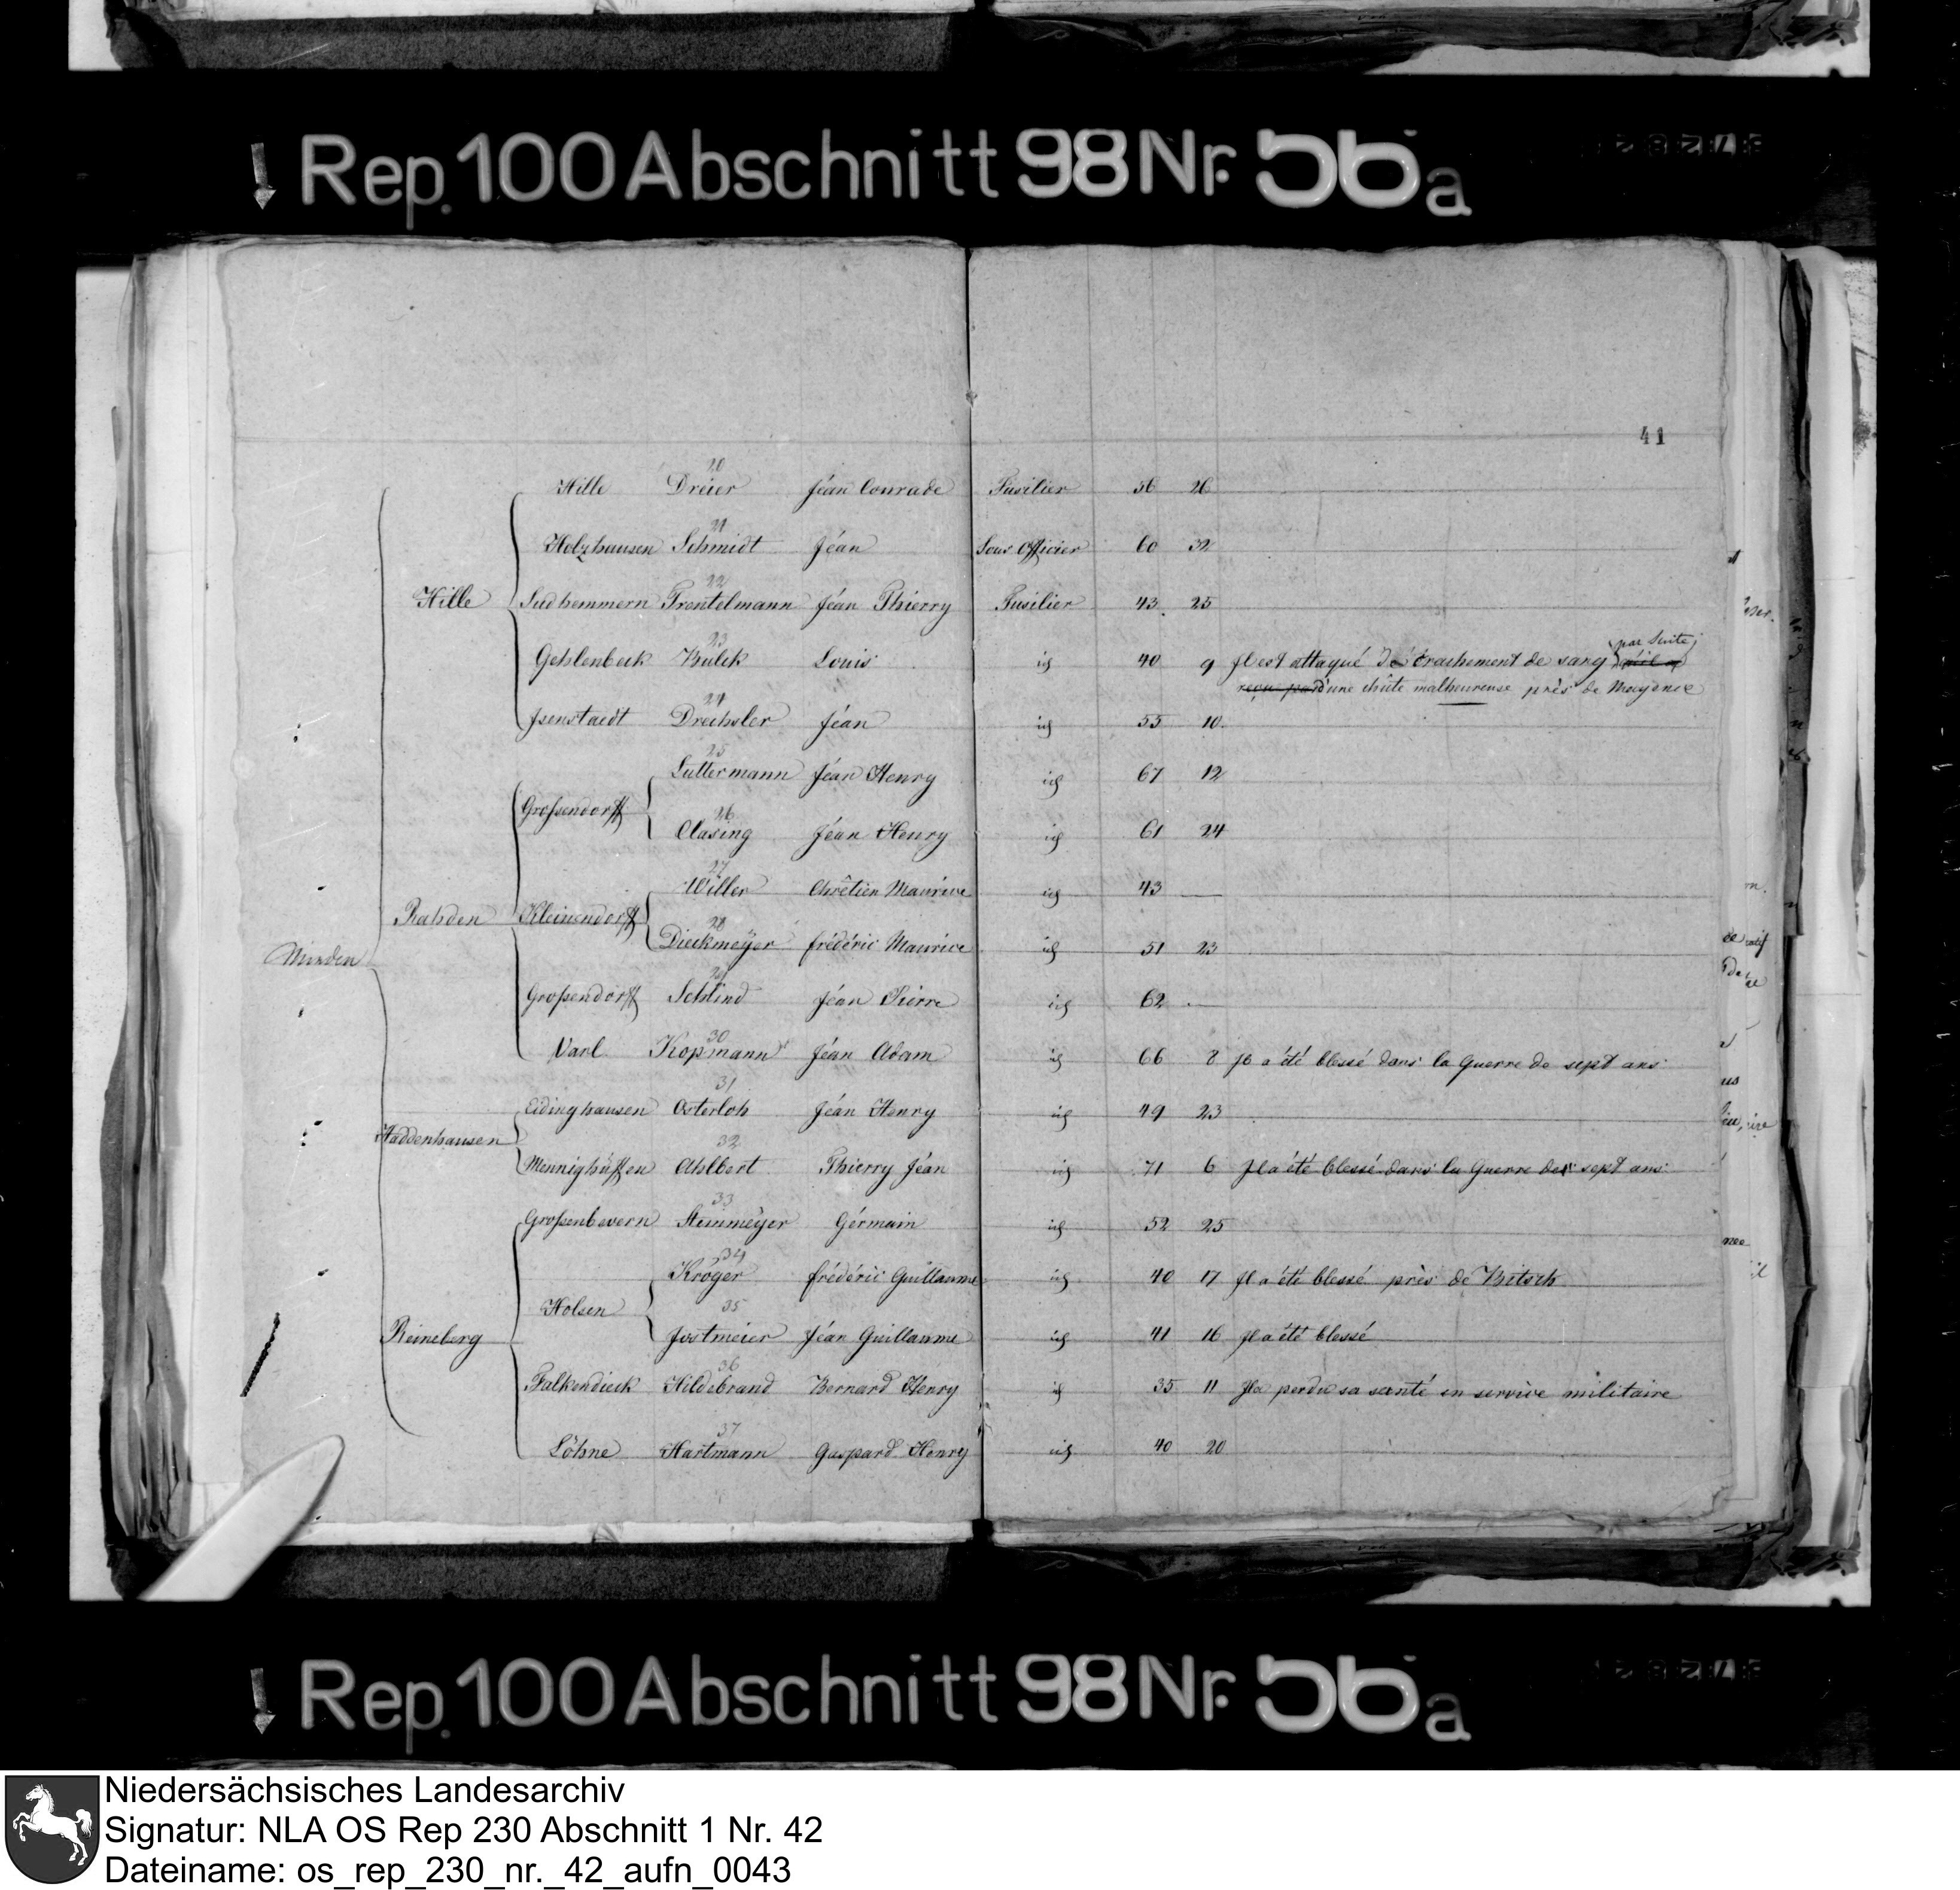 Rep. 100 Abschnitt 98 Nr. 56a
41
Hille Dreier 20 Jéan Conrade Fusilier 56 26
Holzhausen Schmidt 21 Jéan Sous Officier 60 32
Hille Sudhemmern Trentelmann 22 Jéan Thierry Fusilier 43. 25
Gehlenbeck Bulck 23 Louis id 40 9 Il est attaqué de crachement de sang par suite
reçu par d'une chûte malheureuse près de Mayence
Isenstaedt Drechsler 24 Jéan id 55 10.
Luttermann 25 Jéan Henry id 67 12
Großendorff
Clasing 26 Jéan Henry id 61 24
Willer 27 Chrêtien Maurice id 43 —
Rahden Kleinendorff
Dieckmeÿer 28 frédéric Maurice id 51 23
Minden
Großendorff Schlind 29 Jéan Pierre id 62 —
Varl Kopmann 30 Jéan Adam id 66 8 Il a été blessé dans la Guerre de sept ans
Eidinghausen Osterloh 31 Jéan Henry id 49 23
Haddenhausen
Mennighüffen Ahlbert 32 Thierry Jéan id 71 6 Il a été blessé dans la Guerre des sept ans
Großenbevern Steinmeÿer 33 Gérmain id 52 25
Kröger 34 frédéric Guillaume id 40 17 Il a été blessé près de Bitsch
Holsen
Reineberg Jostmeier 35 Jéan Guillaume id 41 16 Il a été blessé
Falkendieck Hildebrand 36 Bernard Henry id 35 11 Il a perdu sa santé en service militaire
Löhne Hartmann 37 Gaspard Henry id 40 20
Rep. 100 Abschnitt 98 Nr. 56a
Niedersächsisches Landesarchiv
Signatur: NLA OS Rep 230 Abschnitt 1 Nr. 42
Dateiname: os_rep_230_nr._42_aufn_0043